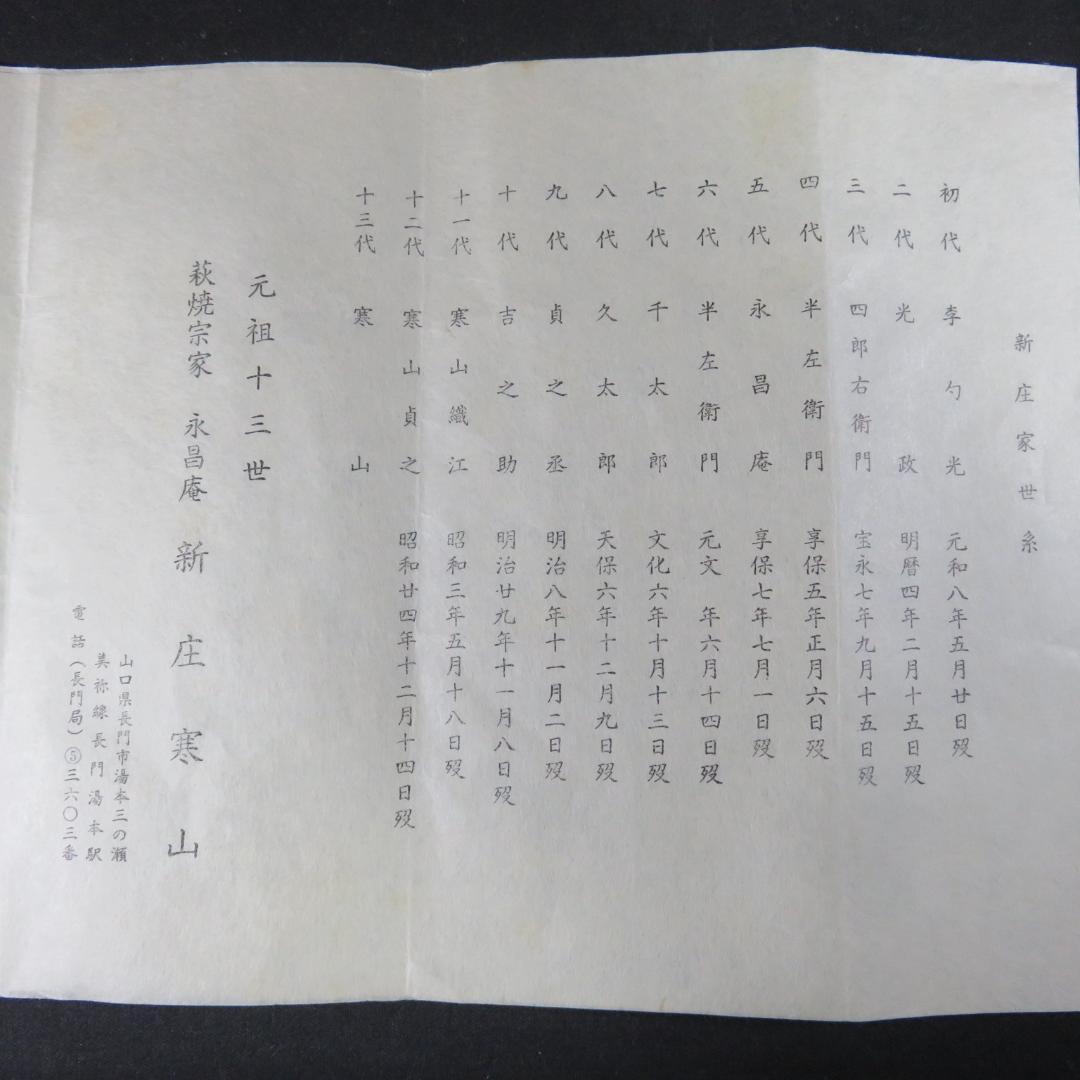 新庄家世系
初代 李勺光 元和八年五月廿日歿
二代 光政 明暦四年二月十五日歿
三代 四郎右衛門 宝永七年九月十五日歿
四代 半左衛門 享保五年正月六日歿
五代 永昌庵 享保七年七月一日歿
六代 半左衛門 元文 年六月十四日歿
七代 千太郎 文化六年十月十三日歿
八代 久太郎 天保六年十二月九日歿
九代 貞之丞 明治八年十一月二日歿
十代 吉之助 明治廿九年十一月八日歿
十一代 寒山織江 昭和三年五月十八日歿
十二代 寒山貞之 昭和廿四年十二月十四日歿
十三代 寒山
元祖十三世
萩焼宗家 永昌庵 新庄寒山
山口県長門市湯本三の瀬
美祢線長門湯本駅
電話（長門局）⑤三六〇三番